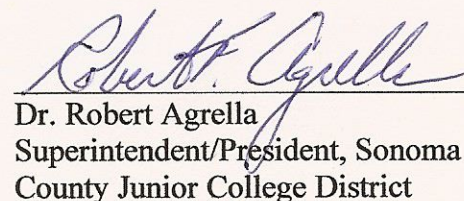 Robert F. Agrella
Dr. Robert Agrella
Superintendent/President, Sonoma
County Junior College District